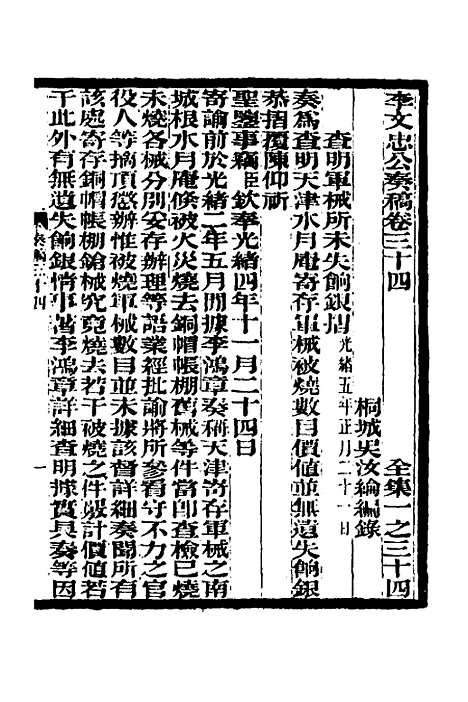 李文忠公奏稿卷三十四　全集一之三十四
桐城吳汝綸編錄
查明軍械所未失餉銀摺光緒五年正月二十一日
奏爲查明天津水月庵寄存軍械被燒數目價値並無遺失餉銀
恭摺覆陳仰祈
聖鑒事竊臣欽奉光緒四年十一月二十四日
寄諭前於光緒二年五月間據李鴻章奏稱天津寄存軍械之南
城根水月庵倏被火災燒去銅帽帳棚舊械等件當卽查檢已燒
未燒各械分別安存辦理等語業經批諭將所參看守不力之官
役人等摘頂懲辦惟被燒軍械數目並未據該督詳細奏聞所有
該處寄存銅帽帳棚鎗械究竟燒去若干被燒之件嚴計價値若
干此外有無遺失餉銀情事著李鴻章詳細查明據實具奏等因
奏稿三十四　一